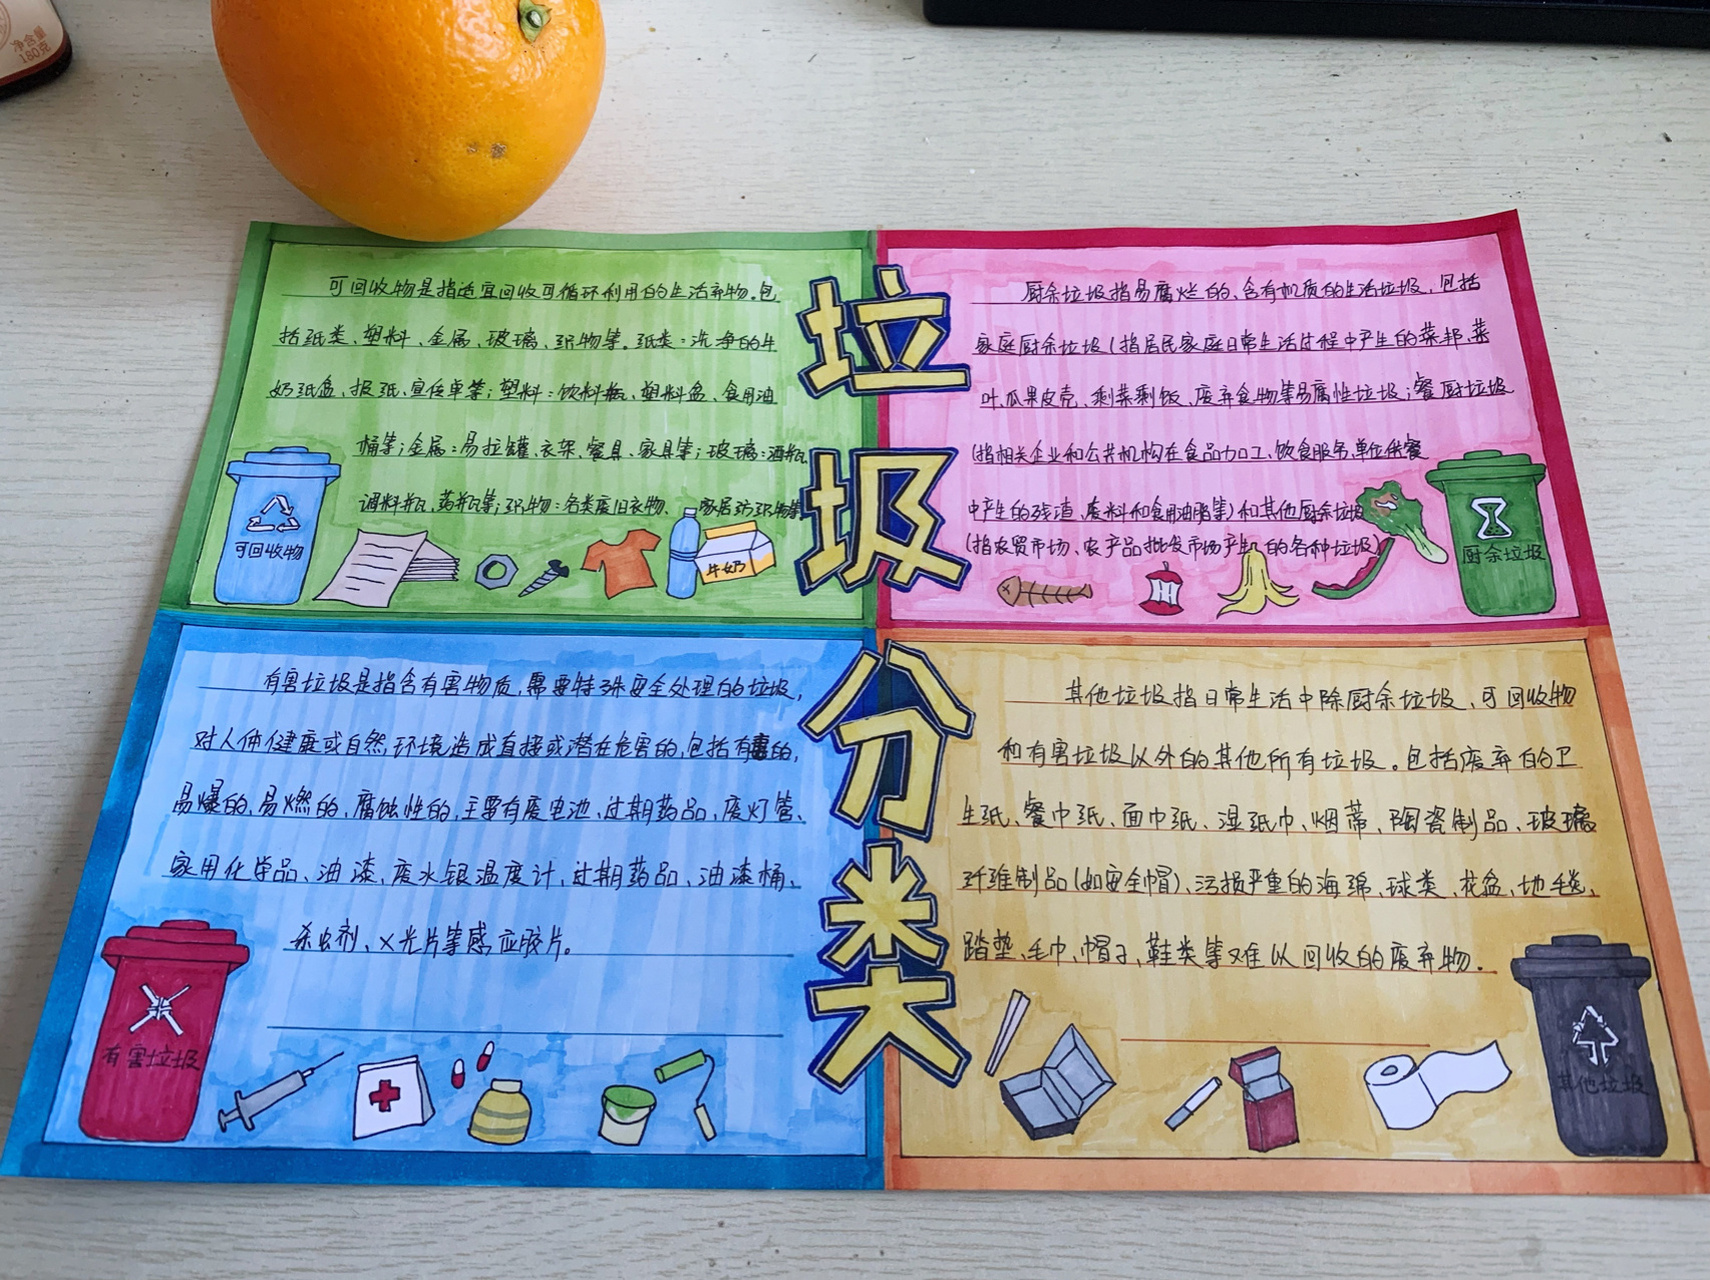 净含量
180克
垃圾分类
可回收物是指适宜回收可循环利用的生活弃物。包
括纸类、塑料、金属、玻璃、织物等。纸类：洗净的牛
奶纸盒、报纸、宣传单等；塑料：饮料瓶、塑料盒、食用油
桶等；金属：易拉罐、衣架、餐具、家具等；玻璃：酒瓶、
调料瓶、药瓶等；织物：各类废旧衣物、家居纺织物等
可回收物
牛奶
厨余垃圾指易腐烂的、含有机质的生活垃圾，包括
家庭厨余垃圾（指居民家庭日常生活过程中产生的菜邦、菜
叶、瓜果皮壳、剩菜剩饭、废弃食物等易腐性垃圾；餐厨垃圾
（指相关企业和公共机构在食品加工、饮食服务、单位供餐
中产生的残渣、废料和食用油脂等）和其他厨余垃圾
（指农贸市场、农产品批发市场产生的各种垃圾）
厨余垃圾
有害垃圾是指含有害物质，需要特殊安全处理的垃圾，
对人体健康或自然环境造成直接或潜在危害的，包括有毒的，
易爆的，易燃的，腐蚀性的，主要有废电池、过期药品、废灯管、
家用化学品、油漆、废水银温度计，过期药品、油漆桶、
杀虫剂、X光片等感应胶片。
有害垃圾
其他垃圾指日常生活中除厨余垃圾、可回收物
和有害垃圾以外的其他所有垃圾。包括废弃的卫
生纸、餐巾纸、面巾纸、湿纸巾、烟蒂、陶瓷制品、玻璃
纤维制品（如安全帽）、污损严重的海绵、球类、花盆、地毯、
踏垫、毛巾、帽子、鞋类等难以回收的废弃物。
其他垃圾